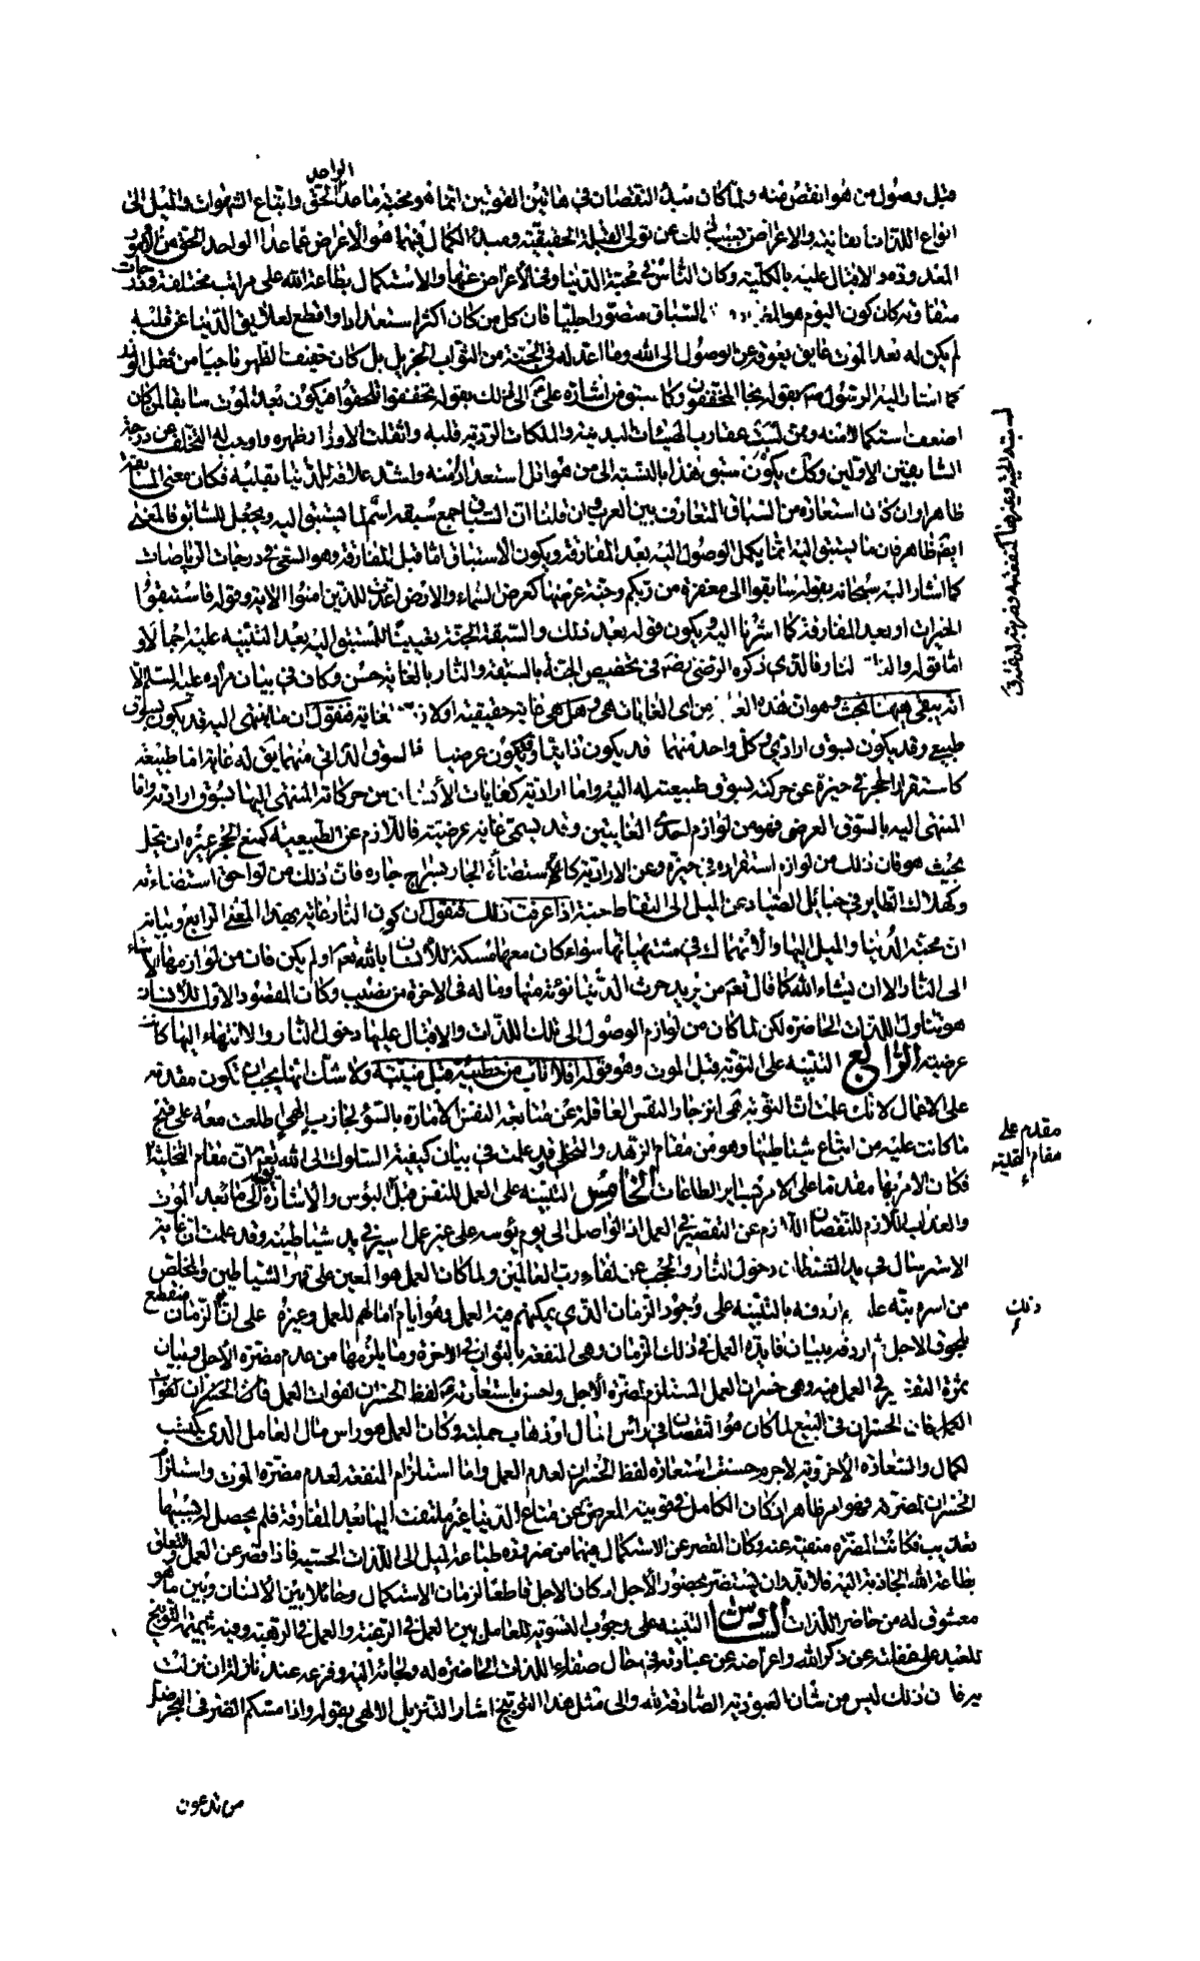 الواحد
قبل وصول من هو انقص منه ولما كان مبدأ النقصان في هاتين القوتين انما هو محبة ما عدا الحق واتباع الشهوات والميل الى
انواع اللذات الفانية والاعراض بسبب ذلك عن تولى القبلة الحقيقية ومبدأ الكمال فيهما هو الاعراض عما عدا الواحد الحق من الامور
المعدودة والاقبال عليه بالكلية وكان الناس في محبة الدنيا وفي الاعراض عنها والاستكمال بطاعة الله على مراتب مختلفة ودرجات
متفاوتة كان كون اليوم هو المضمار السباق متصورا جليا فان كل من كان اكثر استعدادا واقطع لعلايق الدنيا عن قلبه
لم يكن له بعد الموت عايق يعوقه عن الوصول الى الله وما اعد له في الجنة من الثواب الجزيل بل كان خفيف الظهر ناجيا من ثقل الوزر
كما اشار اليه الرسول ص بقوله نجا المخففون وكما سبق من اشارة على ع الى ذلك بقوله تخففوا تلحقوا فيكون بعد الموت سابقا لمن كان
اضعف استكمالا منه وممن لسبت عقارب الهيئات البدنية والملكات الردية قلبه واثقلت الاوزار ظهره واوجب له التخلف عن درجة
السابقين الاولين وكذلك يكون سبق هذا بالنسبة الى من هو اقل استعدادا منه واشد علاقة للدنيا بقلبه فكان معنى المسابقة
ظاهرا وان كان استعارة من السباق المتعارف بين العرب وان قلنا ان السباق جمع سبقة اسم لما يستبق اليه ويجعل للسابق فالمعنى
ايضا ظاهر فان ما يستبق اليه انما يكمل الوصول اليه بعد المفارقة ويكون الاستباق اما قبل المفارقة وهو السعي في درجات الرياضات
كما اشار اليه سبحانه بقوله سابقوا الى مغفرة من ربكم وجنة عرضها كعرض السماء والارض اعدت للذين امنوا الاية وقوله فاستبقوا
الخيرات او بعد المفارقة كما اشرنا اليه ويكون قوله بعد ذلك والسبقة الجنة تعيينا للمستبق اليه بعد التنبيه عليه اجمالا و
اما قوله والغاية النار فالذي ذكره الرضى رضه في تخصيص الجنة بالسبقة والنار بالغاية حسن وكان في بيان مراده عليه السلم الا
انه يبقى ههنا بحث وهو ان هذه الغاية من اي الغايات هي وهل هي غاية حقيقية اولا فنقول ان ما ينتهى اليه قد يكون بسوق
طبيعي وقد يكون بسوق ارادي وكل واحد منهما قد يكون ذاتيا وقد يكون عرضيا فالسوق الذاتي منهما يق له غاية اما طبيعة
كاستقرار الحجر في حيزه عن حركته بسوق طبيعته له اليه واما ارادية كغايات الانسان من حركاته المنتهى اليها بسوق ارادته واما
المنتهى اليه بالسوق العرضى فهو من لوازم احدى الغايتين وقد يسمى غاية عرضية فاللازم عن الطبيعية كمنع الحجر غيره ان يحل
بحيث هو فان ذلك من لوازم استقراره في حيزه وعن الارادية كالاستضاءة الجار بسراج جاره فان ذلك من لواحق استضاءته
وكهلاك الطاير في حبائل الصياد عن الميل الى التقاط حبة اذا عرفت ذلك فنقول ان كون النار غاية بهذا المعنى الرابع وبيانه
ان محبة الدنيا والميل اليها والانهماك في مشتهياتها سواء كان معها مسكة للانسان بالله تعم او لم يكن فان من لوازمها الانتهاء
الى النار الا ان يشاء الله كما قال تعم من يريد حرث الدنيا نؤته منها وما له في الاخرة من نصيب وكان المقصود الاول للانسان
هو تناول اللذات الحاضرة لكن لما كان من لوازم الوصول الى تلك اللذات والاقبال عليها دخول النار والانتهاء اليها كانت
عرضية الرابع التنبيه على التوبة قبل الموت وهو قوله افلا تائب من خطيئته قبل منيته ولا شك انها يجب ان تكون مقدمة
على الاعمال لانك علمت ان التوبة هي انزجار النفس العاقلة عن متابعة النفس الامارة بالسؤ لجاذب الهي اطلعت معه على قبح
ما كانت عليه من اتباع شياطينها وهو من مقام الزهد والتخلى وقد علمت في بيان كيفية السلوك الى الله تعم ان مقام التخلية
فكان الامر بها مقدما على الامر بساير الطاعات الخامس التنبيه على العمل للنفس قبل البؤس والاشارة الى ما بعد الموت
والعذاب اللازم للنفس اللازم عن التقصير في العمل اذ الواصل الى يوم بؤسه على غير عمل اسير في يد شياطينه وقد علمت ان غاية
الاسترسال في يد الشيطان دخول النار والحجب عن لقاء رب العالمين ولما كان العمل هو المعين على قهر الشياطين والمخلص
من اسره نبه عليه اردفه بالتنبيه على وجود الزمان الذي يمكنهم فيه العمل وهو ايام امالهم للعمل وغيره على ان الزمان منقطع
بلحوق الاجل ثم اردفه ببيان فايدة العمل في ذلك الزمان وهي المنفعة بالثواب في الاخرة وما يلزمها من عدم مضرة الاجل وببيان
ثمرة التقصير في العمل فيه وهي خسران العمل المستلزم لمضرة الاجل واحسن باستعارته لفظ الخسران لفوات العمل فان الخسران لفوات
العمل فان الخسران في البيع لما كان هو النقصان في راس المال او ذهاب جملته وكان العمل هو راس مال العامل الذي يكتسب
الكمال والسعادة الاخروية لا جرم حسنت استعارة لفظ الخسران لعدم العمل واما استلزام المنفعة لعدم مضرة الموت واستلزام
الخسران لمضرته فهو امر ظاهر اذ كان الكامل في قوتيه المعرض عن متاع الدنيا غير ملتفت اليها بعد المفارقة فلم يحصل له بسببها
تعذيب فكانت المضرة منتفية عنه وكان المقصر عن الاستكمال فيهما من ضرورة طباعه الميل الى اللذات الحسية فاذا قصر عن العمل والتعلق
بطاعة الله الجاذبة اليه فلا بد ان يستضر بحضور الاجل اذ كان الاجل قاطعا لزمان الاستكمال وحائلا بين الانسان وبين ما هو
معشوق له من حاضر اللذات السادس التنبيه على وجوب التسوية للعامل بين العمل في الرغبة والعمل في الرهبة وفيه شمة التوبيخ
للعبد على غفلته عن ذكر الله واعراضه عن عبادته في حال صفاء اللذات الحاضرة له ولجائه اليه وفزعه عند نازلة ان نزلت
به فان ذلك ليس من شان العبودية الصادقة لله والى مثل هذا التوبيخ اشار التنزيل الالهي بقوله واذا مسكم الضر في البحر ضل
من تدعون
مقدم على
مقام التحلية
ذلك